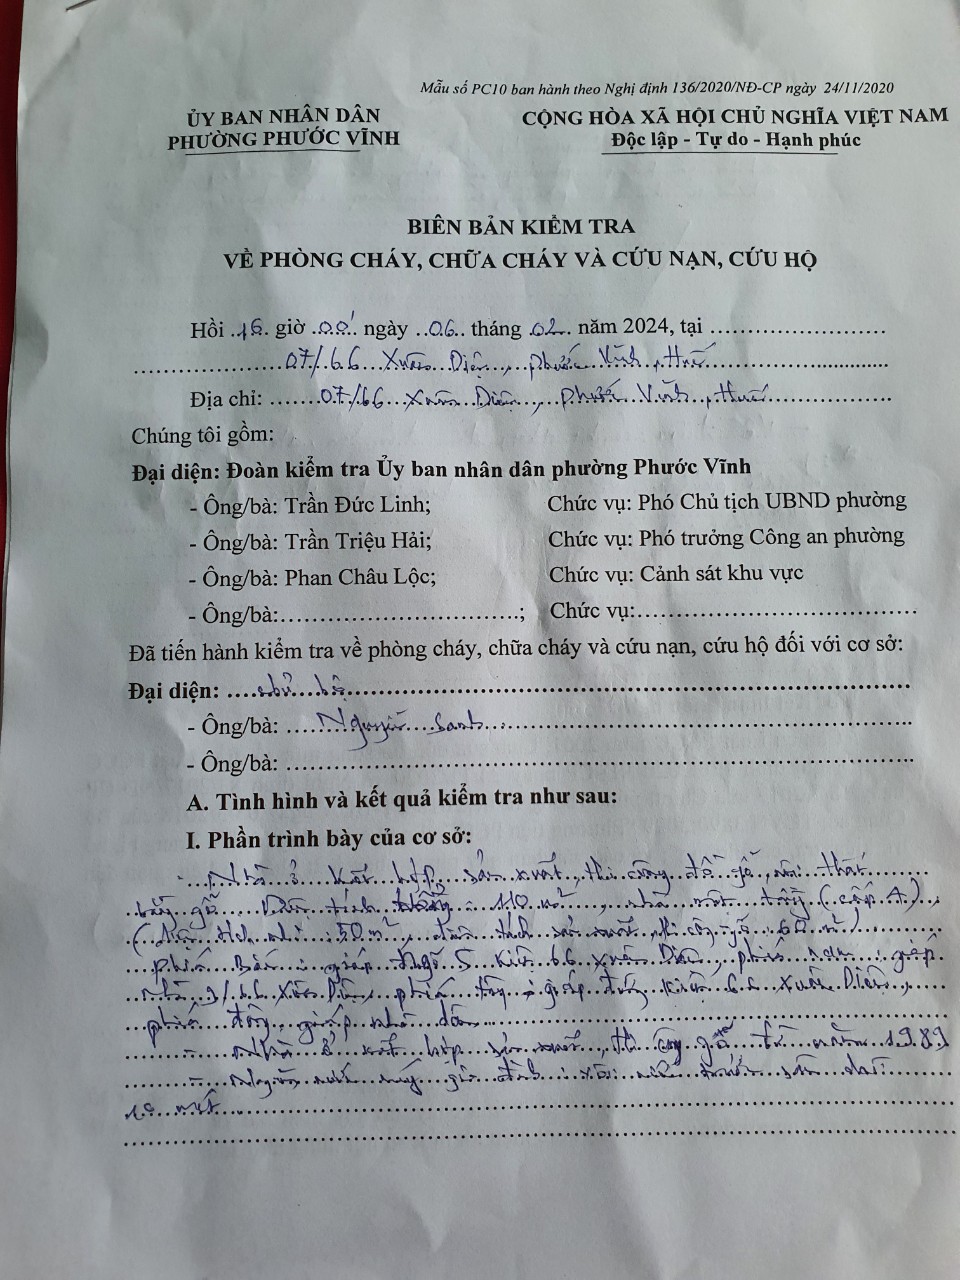 Mẫu số PC10 ban hành theo Nghị định 136/2020/NĐ-CP ngày 24/11/2020
ỦY BAN NHÂN DÂN
PHƯỜNG PHƯỚC VĨNH
CỘNG HÒA XÃ HỘI CHỦ NGHĨA VIỆT NAM
Độc lập - Tự do - Hạnh phúc
BIÊN BẢN KIỂM TRA
VỀ PHÒNG CHÁY, CHỮA CHÁY VÀ CỨU NẠN, CỨU HỘ
Hồi ..16. giờ .00' ngày ..06.. tháng .02.. năm 2024, tại ..........................
07/.66 Xuân Diệu, Phước Vĩnh, Huế
Địa chỉ: .......07/66 Xuân Diệu, Phước Vĩnh, Huế
Chúng tôi gồm:
Đại diện: Đoàn kiểm tra Ủy ban nhân dân phường Phước Vĩnh
- Ông/bà: Trần Đức Linh; Chức vụ: Phó Chủ tịch UBND phường
- Ông/bà: Trần Triệu Hải; Chức vụ: Phó trưởng Công an phường
- Ông/bà: Phan Châu Lộc; Chức vụ: Cảnh sát khu vực
- Ông/bà:...................................; Chức vụ:..........................................
Đã tiến hành kiểm tra về phòng cháy, chữa cháy và cứu nạn, cứu hộ đối với cơ sở:
Đại diện: ....chủ hộ
- Ông/bà: Nguyễn
- Ông/bà: ..........................................................................................
A. Tình hình và kết quả kiểm tra như sau:
I. Phần trình bày của cơ sở:
- Nhà ở kết hợp sản xuất, thi công đồ gỗ, nội thất
bằng gỗ. Diện tích : 110 m², nhà một tầng (cấp 4),
(diện tích nhà : 50 m², diện tích sản xuất, thi công gỗ 60 m²)
Phía Bắc : giáp ngõ 5 kiệt 66 Xuân Diệu, phía nam : giáp
nhà 9/66 Xuân Diệu, phía tây : giáp đường kiệt 66 Xuân Diệu,
phía đông, giáp nhà dân
- Nhà ở kết hợp sản xuất, thi công gỗ từ năm 1989
- Nguồn nước máy gia đình
10 mét